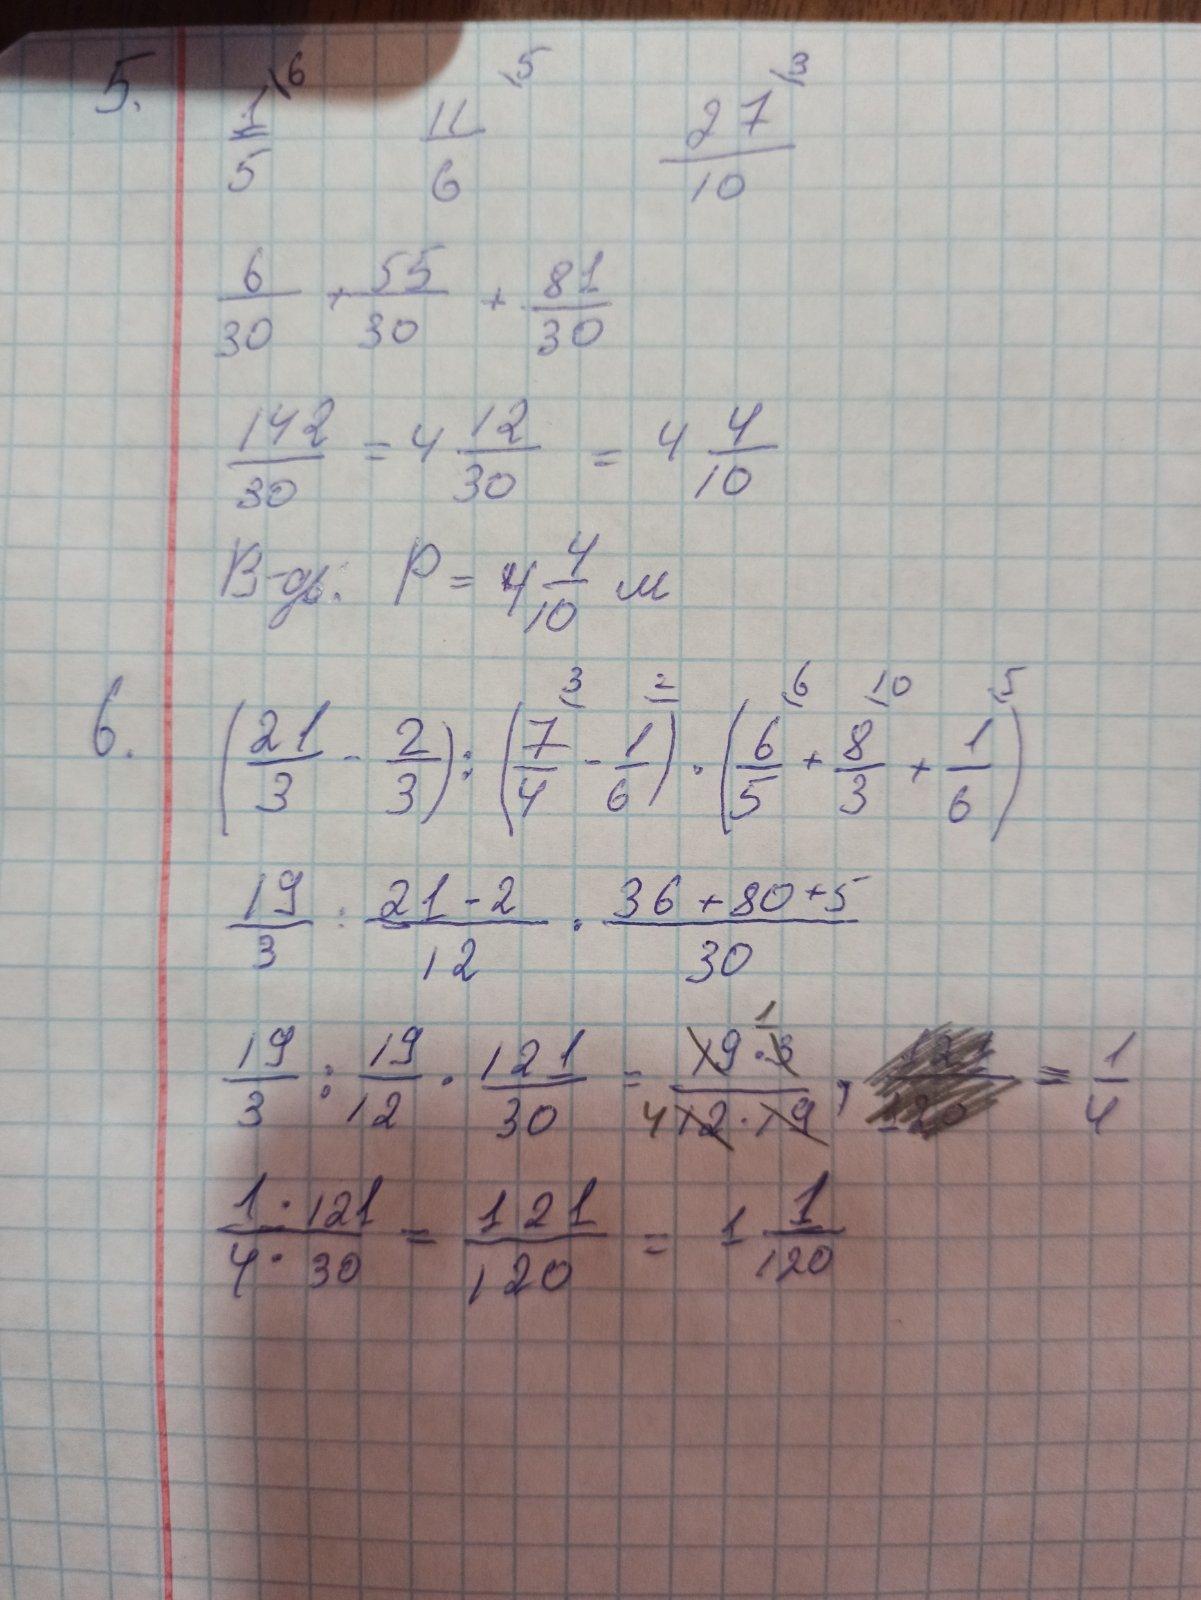 5. 1/5 \6 11/6 \5 27/10 \3
6/30 + 55/30 + 81/30
142/30 = 4 12/30 = 4 4/10
В-дь: P = 4 4/10 м
6. (21/3 - 2/3) : (7/4 \3 - 1/6 \2) · (6/5 \6 + 8/3 \10 + 1/6 \5)
19/3 : 21-2/12 · 36+80+5/30
19/3 : 19/12 · 121/30 = 19·3 1/4 12·19 = 1/4
1·121/4·30 = 121/120 = 1 1/120